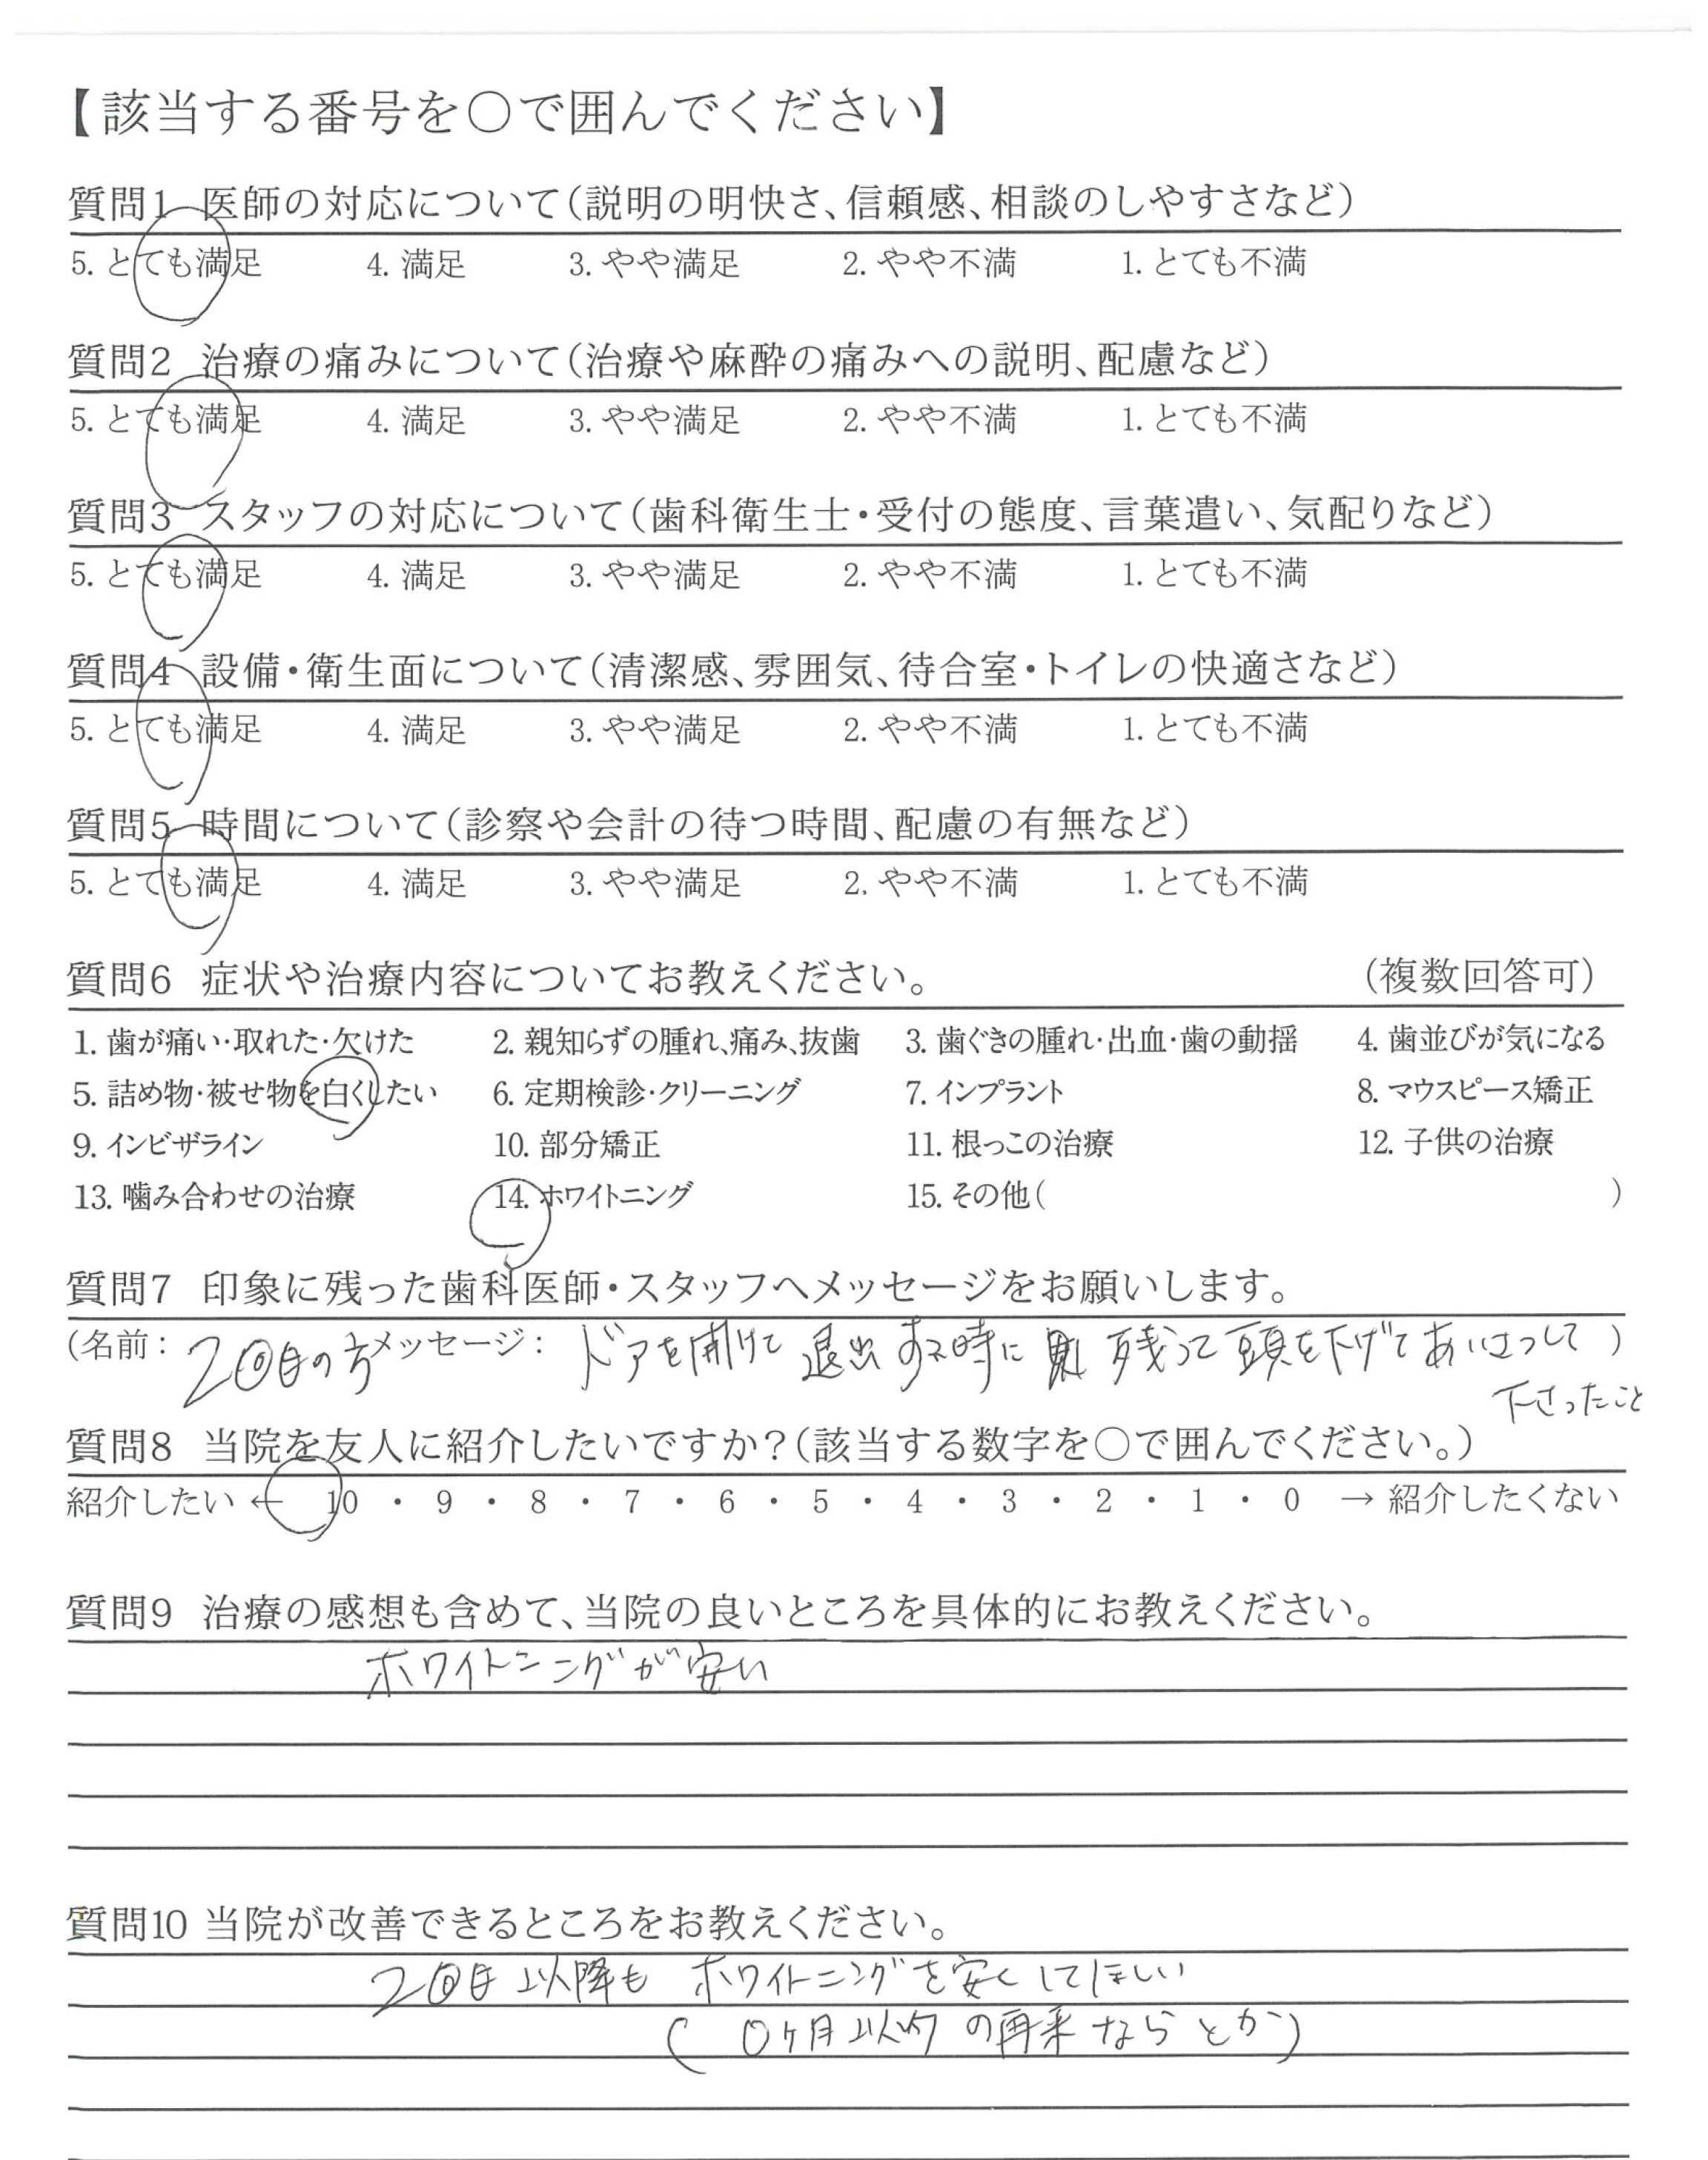 【該当する番号を○で囲んでください】
質問1 医師の対応について（説明の明快さ、信頼感、相談のしやすさなど）
5. とても満足 4. 満足 3. やや満足 2. やや不満 1. とても不満
質問2 治療の痛みについて（治療や麻酔の痛みへの説明、配慮など）
5. とても満足 4. 満足 3. やや満足 2. やや不満 1. とても不満
質問3 スタッフの対応について（歯科衛生士・受付の態度、言葉遣い、気配りなど）
5. とても満足 4. 満足 3. やや満足 2. やや不満 1. とても不満
質問4 設備・衛生面について（清潔感、雰囲気、待合室・トイレの快適さなど）
5. とても満足 4. 満足 3. やや満足 2. やや不満 1. とても不満
質問5 時間について（診察や会計の待つ時間、配慮の有無など）
5. とても満足 4. 満足 3. やや満足 2. やや不満 1. とても不満
質問6 症状や治療内容についてお教えください。 （複数回答可）
1. 歯が痛い・取れた・欠けた 2. 親知らずの腫れ、痛み、抜歯 3. 歯ぐきの腫れ・出血・歯の動揺 4. 歯並びが気になる
5. 詰め物・被せ物を白くしたい 6. 定期検診・クリーニング 7. インプラント 8. マウスピース矯正
9. インビザライン 10. 部分矯正 11. 根っこの治療 12. 子供の治療
13. 噛み合わせの治療 14. ホワイトニング 15. その他（ ）
質問7 印象に残った歯科医師・スタッフへメッセージをお願いします。
（名前： 2回目の方 メッセージ： ドアを開けて退出する時に 残って頭を下げてあいさつして ）
下さったこと
質問8 当院を友人に紹介したいですか？（該当する数字を○で囲んでください。）
紹介したい ← 10 ・ 9 ・ 8 ・ 7 ・ 6 ・ 5 ・ 4 ・ 3 ・ 2 ・ 1 ・ 0 → 紹介したくない
質問9 治療の感想も含めて、当院の良いところを具体的にお教えください。
ホワイトニングが安い
質問10 当院が改善できるところをお教えください。
2回目以降も ホワイトニングを安くしてほしい
（ ○ヶ月以内の再来ならとか）